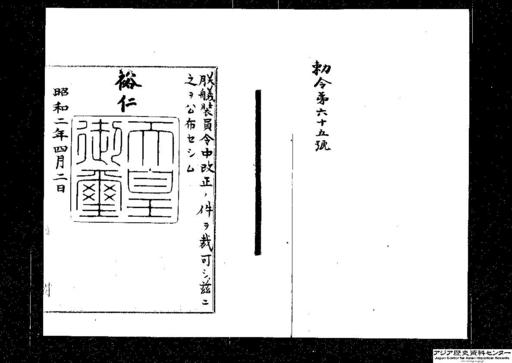 勅令第六十五號
朕艤装員令中改正ノ件ヲ裁可シ茲ニ
之ヲ公布セシム
裕仁
天皇
御璽
昭和二年四月二日
アジア歴史資料センター
Japan Center for Asian Historical Records